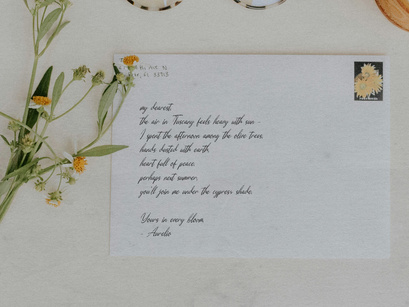 my dearest,
the air in Tuscany feels heavy with sun -
I spent the afternoon among the olive trees,
hands dusted with earth,
heart full of peace.
perhaps next summer,
you'll join me under the cypress shade.
Yours in every bloom
- Aurelio